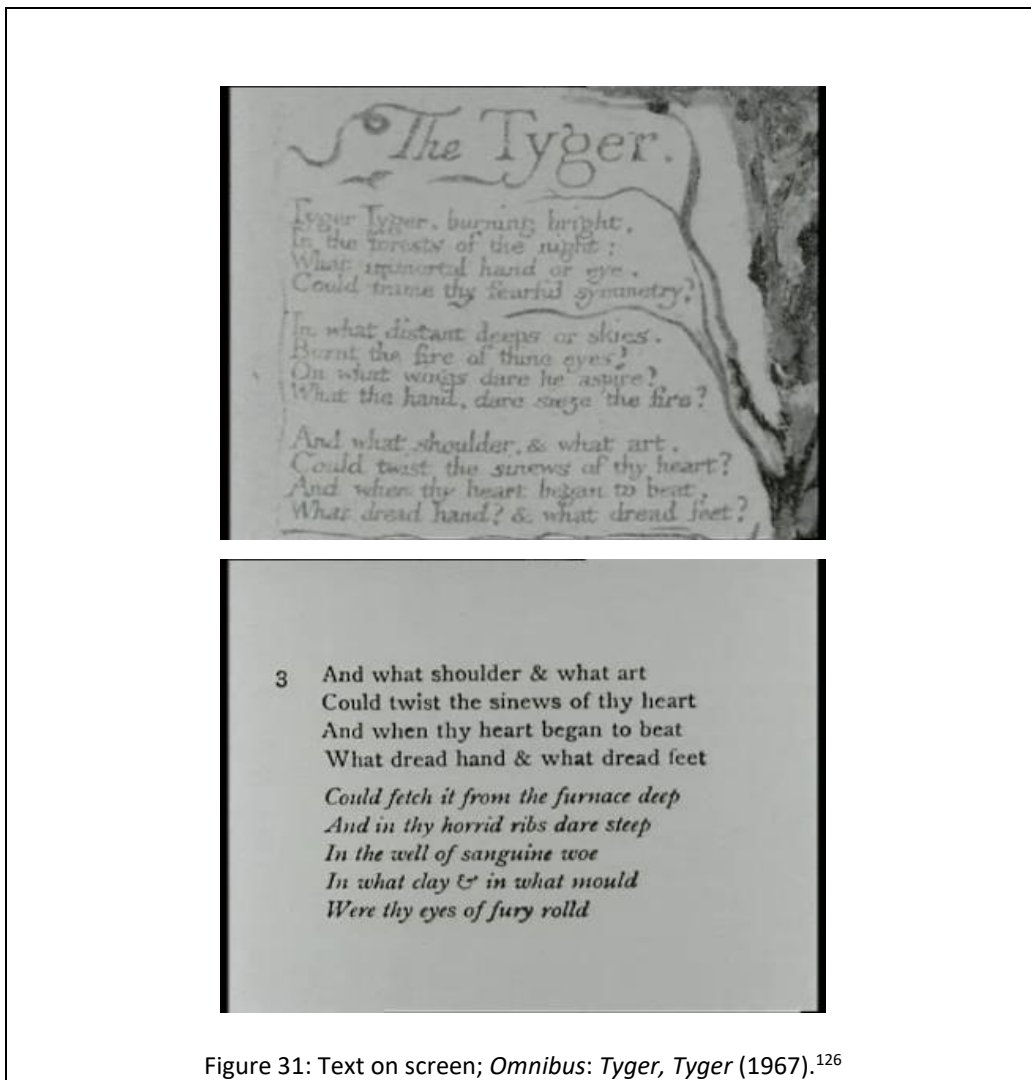 The Tyger.
Tyger Tyger, burning bright,
In the forests of the night:
What immortal hand or eye,
Could frame thy fearful symmetry?
In what distant deeps or skies.
Burnt the fire of thine eyes?
On what wings dare he aspire?
What the hand, dare sieze the fire?
And what shoulder, & what art,
Could twist the sinews of thy heart?
And when thy heart began to beat,
What dread hand? & what dread feet?
3 And what shoulder & what art
Could twist the sinews of thy heart
And when thy heart began to beat
What dread hand & what dread feet
Could fetch it from the furnace deep
And in thy horrid ribs dare steep
In the well of sanguine woe
In what clay & in what mould
Were thy eyes of fury rolld
Figure 31: Text on screen; Omnibus: Tyger, Tyger (1967).126